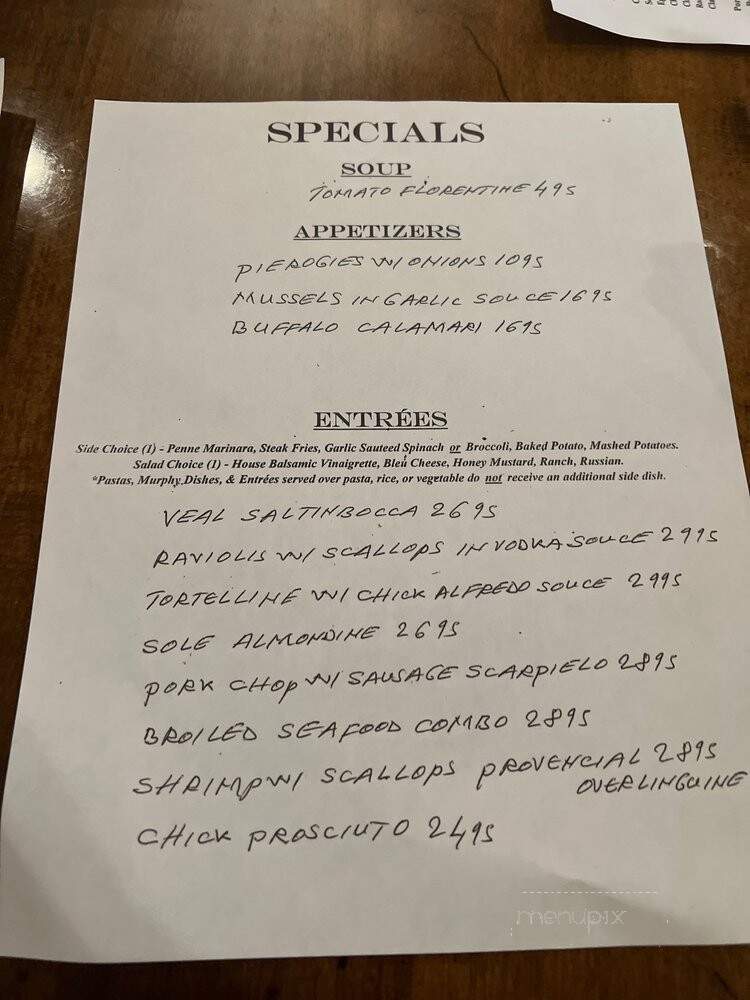 SPECIALS
SOUP
TOMATO FLORENTINE 495
APPETIZERS
PIEROGIES W/ ONIONS 1095
MUSSELS IN GARLIC SOUCE 1695
BUFFALO CALAMARI 1695
ENTRÉES
Side Choice (1) - Penne Marinara, Steak Fries, Garlic Sauteed Spinach or Broccoli, Baked Potato, Mashed Potatoes.
Salad Choice (1) - House Balsamic Vinaigrette, Bleu Cheese, Honey Mustard, Ranch, Russian.
*Pastas, Murphy Dishes, & Entrées served over pasta, rice, or vegetable do not receive an additional side dish.
VEAL SALTINBOCCA 2695
RAVIOLIS W/ SCALLOPS IN VODKA SOUCE 2995
TORTELLINE W/ CHICK ALFREDO SOUCE 2995
SOLE ALMONDINE 2695
PORK CHOP W/ SAUSAGE SCARPIELO 2895
BROILED SEAFOOD COMBO 2895
SHRIMP W/ SCALLOPS PROVENCIAL 2895
OVER LINGUINE
CHICK PROSCIUTO 2495
menupix